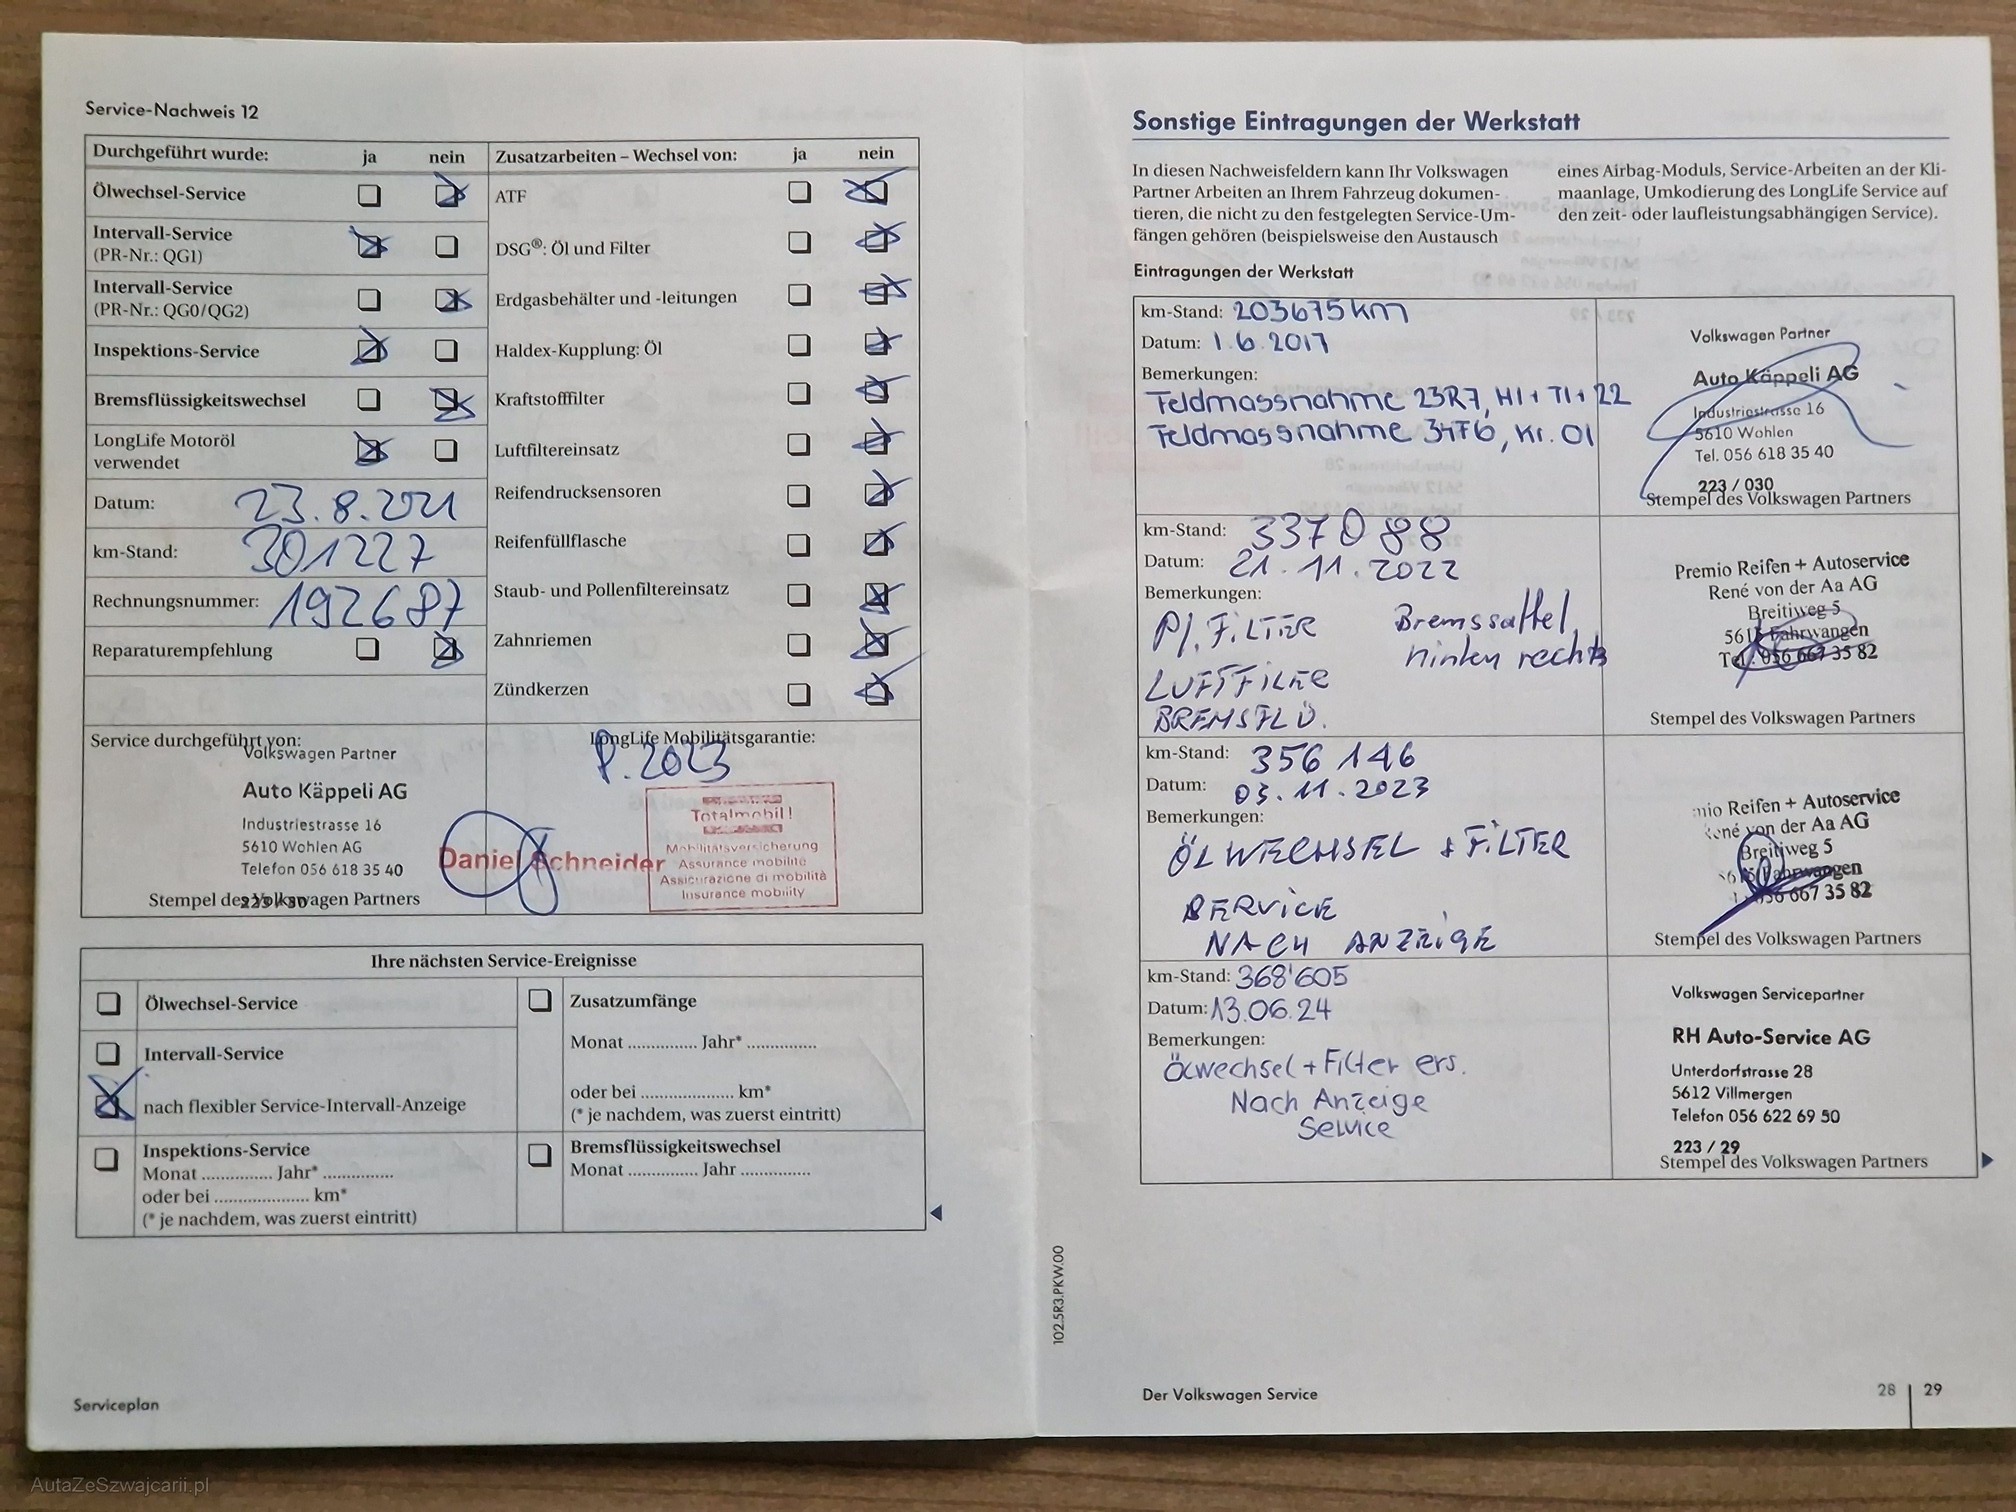 Service-Nachweis 12
Durchgeführt wurde: ja nein
Ölwechsel-Service
Intervall-Service
(PR-Nr.: QG1)
Intervall-Service
(PR-Nr.: QG0/QG2)
Inspektions-Service
Bremsflüssigkeitswechsel
LongLife Motoröl
verwendet
Datum: 23.8.2021
km-Stand: 301227
Rechnungsnummer: 192687
Reparaturempfehlung
Zusatzarbeiten – Wechsel von: ja nein
ATF
DSG®: Öl und Filter
Erdgasbehälter und -leitungen
Haldex-Kupplung: Öl
Kraftstofffilter
Luftfiltereinsatz
Reifendrucksensoren
Reifenfüllflasche
Staub- und Pollenfiltereinsatz
Zahnriemen
Zündkerzen
Service durchgeführt von:
Volkswagen Partner
Auto Käppeli AG
Industriestrasse 16
5610 Wohlen AG
Telefon 056 618 35 40
223 / 30
Stempel des Volkswagen Partners
LongLife Mobilitätsgarantie:
P. 2023
Daniel Schneider
Totalmobil!
Mobilitätsversicherung
Assurance mobilité
Assicurazione di mobilità
Insurance mobility
Ihre nächsten Service-Ereignisse
Ölwechsel-Service
Intervall-Service
nach flexibler Service-Intervall-Anzeige
Inspektions-Service
Monat .............. Jahr* ..............
oder bei ................... km*
(* je nachdem, was zuerst eintritt)
Zusatzumfänge
Monat .............. Jahr* ..............
oder bei ................... km*
(* je nachdem, was zuerst eintritt)
Bremsflüssigkeitswechsel
Monat .............. Jahr ..............
Serviceplan
Sonstige Eintragungen der Werkstatt
In diesen Nachweisfeldern kann Ihr Volkswagen
Partner Arbeiten an Ihrem Fahrzeug dokumen-
tieren, die nicht zu den festgelegten Service-Um-
fängen gehören (beispielsweise den Austausch
eines Airbag-Moduls, Service-Arbeiten an der Kli-
maanlage, Umkodierung des LongLife Service auf
den zeit- oder laufleistungsabhängigen Service).
Eintragungen der Werkstatt
km-Stand: 203675km
Datum: 1.6.2017
Bemerkungen:
Feldmassnahme 23R7, H1+T1+22
Feldmassnahme 34F6, Kr. 01
Volkswagen Partner
Auto Käppeli AG
Industriestrasse 16
5610 Wohlen
Tel. 056 618 35 40
223 / 030
Stempel des Volkswagen Partners
km-Stand: 337088
Datum: 21.11.2022
Bemerkungen:
P/. FILTER Bremssattel
hinten rechts
LUFTFILTER
BREMSFLÜ.
Premio Reifen + Autoservice
René von der Aa AG
Breitiweg 5
5615 Fahrwangen
Tel. 056 667 35 82
Stempel des Volkswagen Partners
km-Stand: 356146
Datum: 03.11.2023
Bemerkungen:
ÖLWECHSEL + FILTER
SERVICE
NACH ANZEIGE
Reifen + Autoservice
René von der Aa AG
Breitiweg 5
5615 Fahrwangen
056 667 35 82
Stempel des Volkswagen Partners
km-Stand: 368'605
Datum: 13.06.24
Bemerkungen:
Ölwechsel + Filter ers.
Nach Anzeige
Service
Volkswagen Servicepartner
RH Auto-Service AG
Unterdorfstrasse 28
5612 Villmergen
Telefon 056 622 69 50
223 / 29
Stempel des Volkswagen Partners
102.5R3.PKW.00
Der Volkswagen Service
28 29
AutaZeSzwajcarii.pl